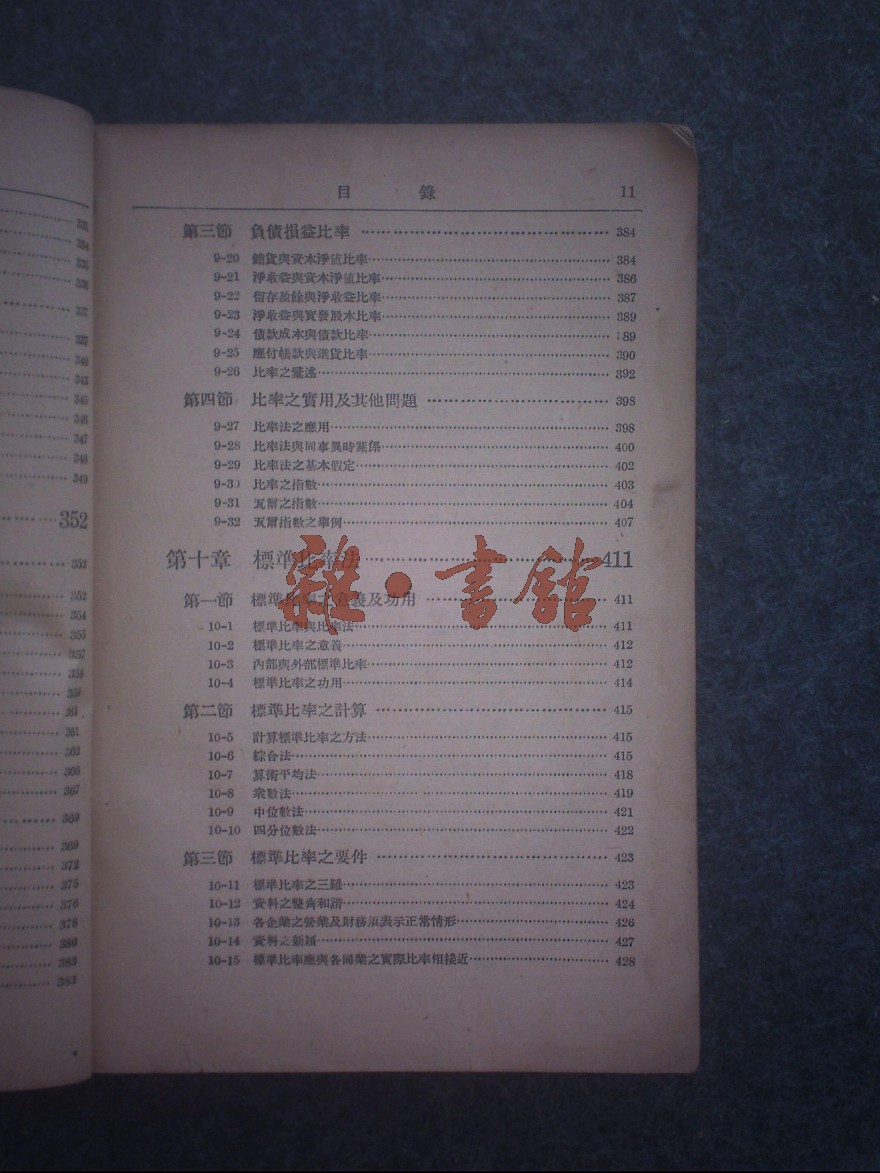 333
334
335
336
337
337
340
343
345
346
347
348
349
352
352
352
354
355
357
358
359
361
361
362
366
367
369
369
373
375
376
378
380
383
383
目 錄 11
第三節 負債損益比率 ………………………………… 384
9-20 銷貨與資本淨值比率………………………………… 384
9-21 淨收益與資本淨值比率………………………………… 386
9-22 留存盈餘與淨收益比率………………………………… 387
9-23 淨收益與實發股本比率………………………………… 389
9-24 債款成本與債款比率………………………………… 389
9-25 應付帳款與進貨比率………………………………… 390
9-26 比率之彙述………………………………… 392
第四節 比率之實用及其他問題 ………………………… 398
9-27 比率法之應用………………………………… 398
9-28 比率法與同事異時關係………………………………… 400
9-29 比率法之基本假定………………………………… 402
9-30 比率之指數………………………………… 403
9-31 瓦爾之指數………………………………… 404
9-32 瓦爾指數之舉例………………………………… 407
第十章 標準比率法………………………………411
第一節 標準比率之意義及功用 ………………………… 411
10-1 標準比率與比率法………………………………… 411
10-2 標準比率之意義………………………………… 412
10-3 內部與外部標準比率………………………………… 412
10-4 標準比率之功用………………………………… 414
第二節 標準比率之計算 ………………………………… 415
10-5 計算標準比率之方法………………………………… 415
10-6 綜合法………………………………… 415
10-7 算術平均法………………………………… 418
10-8 衆數法………………………………… 419
10-9 中位數法………………………………… 421
10-10 四分位數法………………………………… 422
第三節 標準比率之要件 ………………………………… 423
10-11 標準比率之三難………………………………… 423
10-12 資料之整齊和諧………………………………… 424
10-13 各企業之營業及財務須表示正常情形………………………… 426
10-14 資料之新穎………………………………… 427
10-15 標準比率應與各同業之實際比率相接近………………………… 428
雜·書館